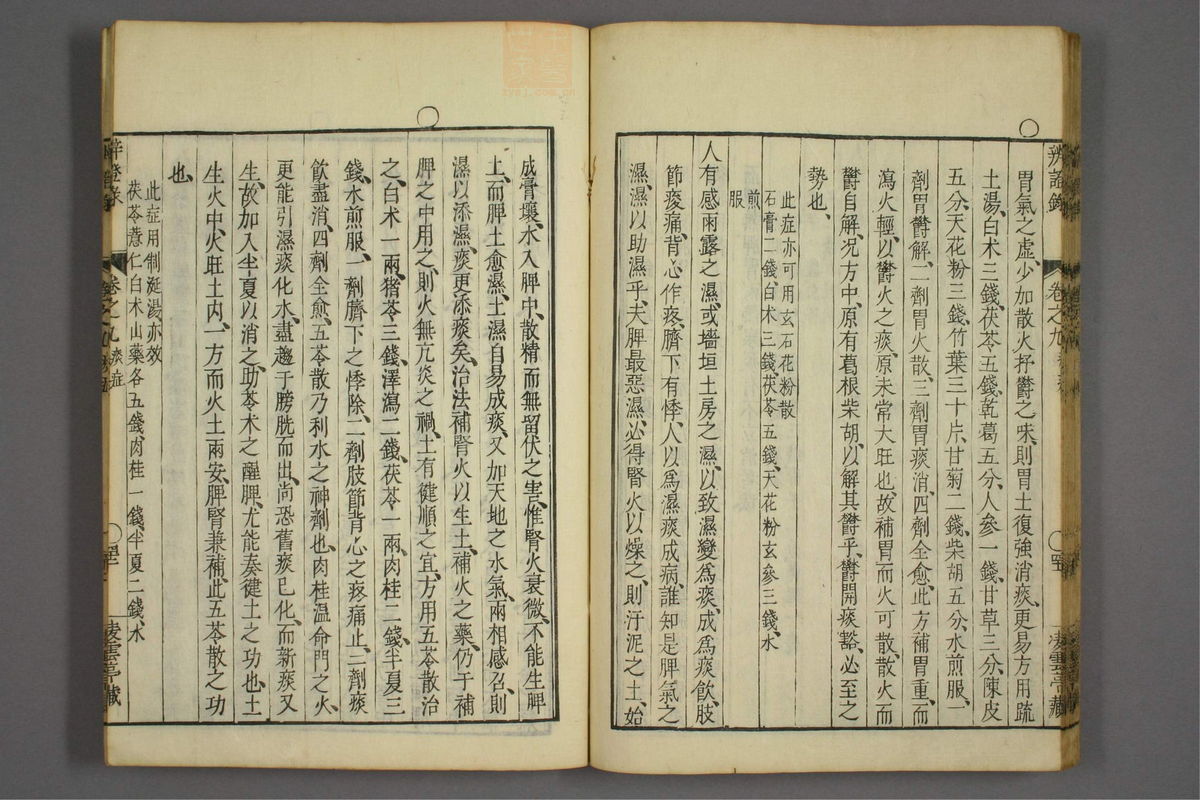 辨證錄 卷之九 凌雲亭藏
胃氣之虛、少加散火抒鬱之味、則胃土復強消痰、更易方用疏
土湯、白术三錢、茯苓五錢、乾葛五分、人參一錢、甘草三分、陳皮
五分、天花粉三錢、竹葉三十片、甘菊二錢、柴胡五分、水煎服、一
劑胃鬱解、二劑胃火散、三劑胃痰消、四劑全愈、此方補胃重、而
瀉火輕、以鬱火之痰、原未常大旺也、故補胃而火可散、散火而
鬱自解、况方中、原有葛根柴胡、以解其鬱乎、鬱開痰豁、必至之
勢也、
此症亦可用玄石花粉散
石膏二錢、白术三錢、茯苓五錢、天花粉玄參三錢、水
煎服
人有感雨露之濕、或墻垣土房之濕、以致濕變爲痰、成爲痰飲、肢
節痠痛、背心作疼、臍下有悸、人以爲濕痰成病、誰知是脾氣之
濕、濕以助濕乎、夫脾最惡濕、必得腎火以燥之、則汙泥之土、始
成膏壤、水入脾中、散精而無留伏之害、惟腎火衰微、不能生脾
土、而脾土愈濕、土濕自易成痰、又加天地之水氣、兩相感召、則
濕以添濕、痰更添痰矣、治法補腎火以生土、補火之藥、仍于補
脾之中用之、則火無亢炎之禍、土有健順之宜、方用五苓散治
之、白术一兩、猪苓三錢、澤瀉二錢、茯苓一兩、肉桂二錢、半夏三
錢、水煎服、一劑臍下之悸除、二劑肢節背心之疼痛止、三劑痰
飲盡消、四劑全愈、五苓散乃利水之神劑也、肉桂溫命門之火、
更能引濕痰化水、盡趨于膀胱而出、尚恐舊痰已化、而新痰又
生、故加入半夏以消之、助苓术之醒脾、尤能奏健土之功也、土
生火中、火旺土内、一方而火土兩安、脾腎兼補、此五苓散之功
也、
此症用制涎湯亦效
茯苓薏仁白术山藥各五錢、肉桂一錢、半夏二錢、水
辛證录 卷之九 痰症 凌雲亭藏